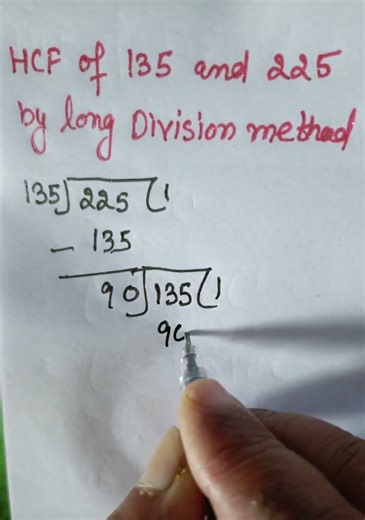 HCF of 135 and 225
by long Division method
135)225(1
- 135
90)135(1
90